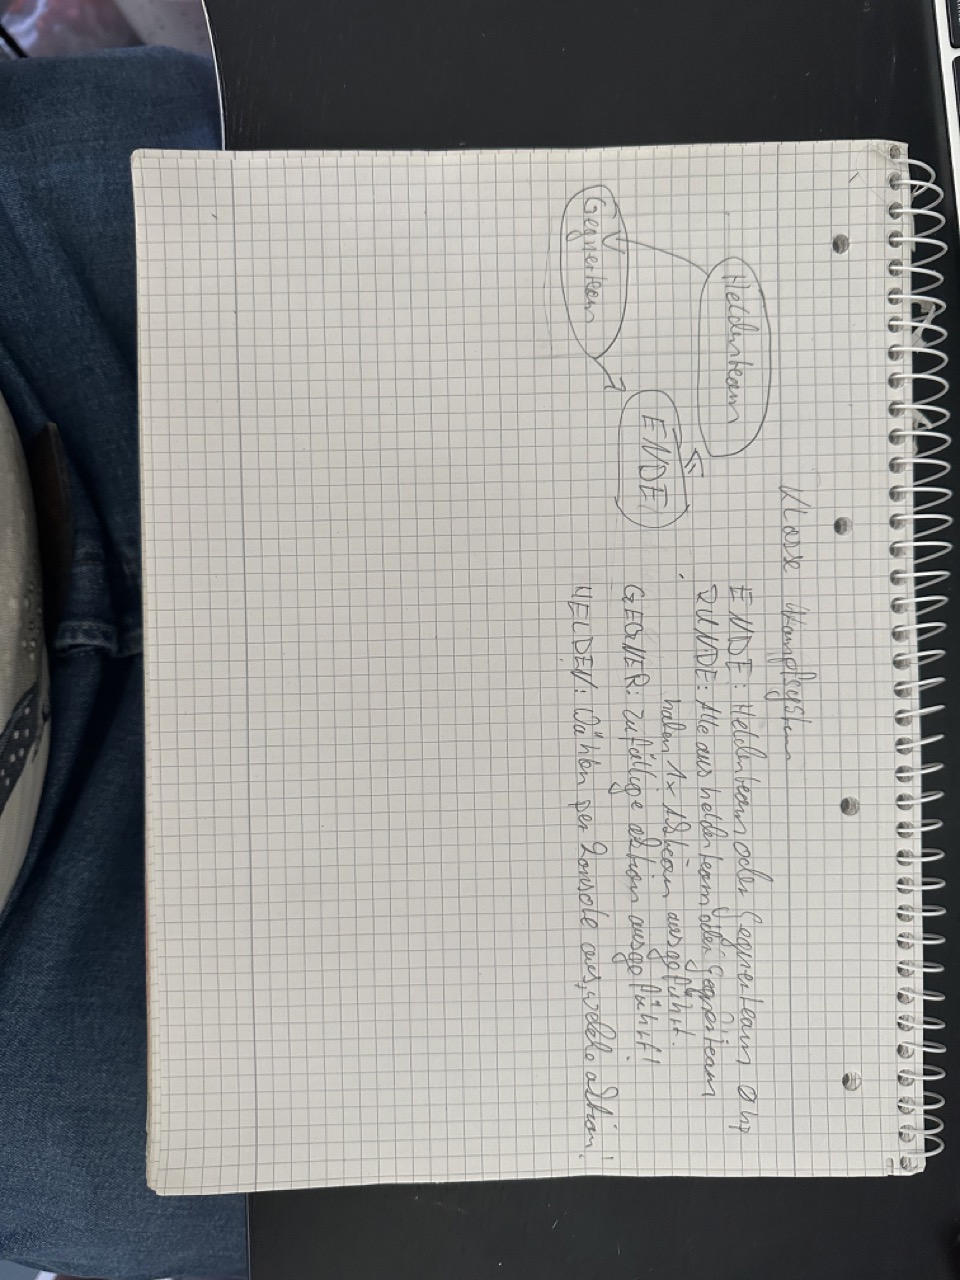 Klasse Kampfsystem
Heldenteam
Gegnerteam
ENDE
ENDE: Heldenteam oder Gegnerteam 0 hp
RUNDE: Alle aus heldenteam oder gegnerteam
haben 1x Aktion ausgeführt.
GEGNER: Zufällige aktion ausgeführt!
HELDEN: Wählen per Konsole aus, welche aktion!